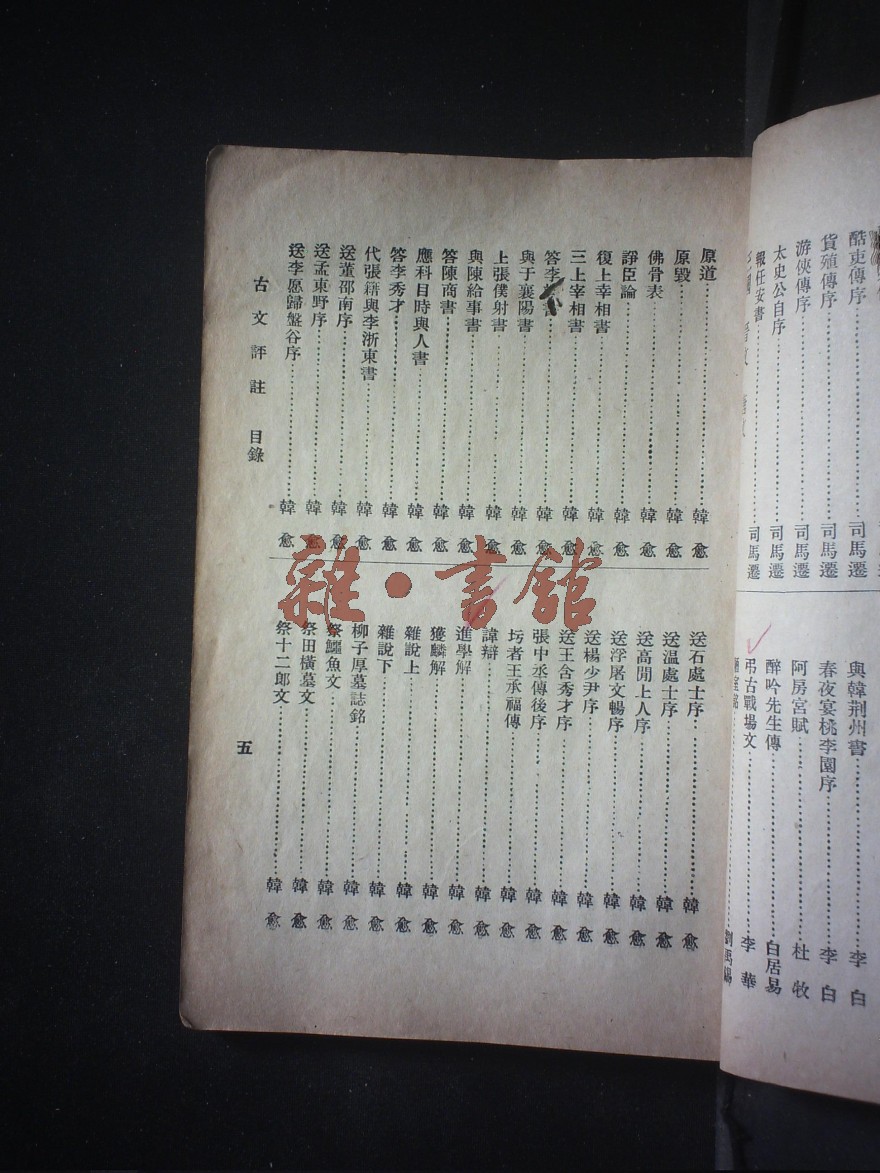 酷吏傳序 司馬遷
貨殖傳序 司馬遷
游俠傳序 司馬遷
太史公自序 司馬遷
報任安書 司馬遷
與韓荆州書 李白
春夜宴桃李園序 李白
阿房宮賦 杜牧
醉吟先生傳 白居易
弔古戰場文 李華
劉禹錫
原道 韓愈
原毀 韓愈
佛骨表 韓愈
諍臣論 韓愈
復上宰相書 韓愈
三上宰相書 韓愈
答李 書 韓愈
與于襄陽書 韓愈
上張僕射書 韓愈
與陳給事書 韓愈
答陳商書 韓愈
應科目時與人書 韓愈
答李秀才 韓愈
代張籍與李浙東書 韓愈
送董邵南序 韓愈
送孟東野序 韓愈
送李愿歸盤谷序 韓愈
送石處士序 韓愈
送溫處士序 韓愈
送高閒上人序 韓愈
送浮屠文暢序 韓愈
送楊少尹序 韓愈
送王含秀才序 韓愈
張中丞傳後序 韓愈
圬者王承福傳 韓愈
諱辯 韓愈
進學解 韓愈
獲麟解 韓愈
雜說上 韓愈
雜說下 韓愈
柳子厚墓誌銘 韓愈
祭鱷魚文 韓愈
祭田橫墓文 韓愈
祭十二郎文 韓愈
古文評註 目錄
五
雜·書館